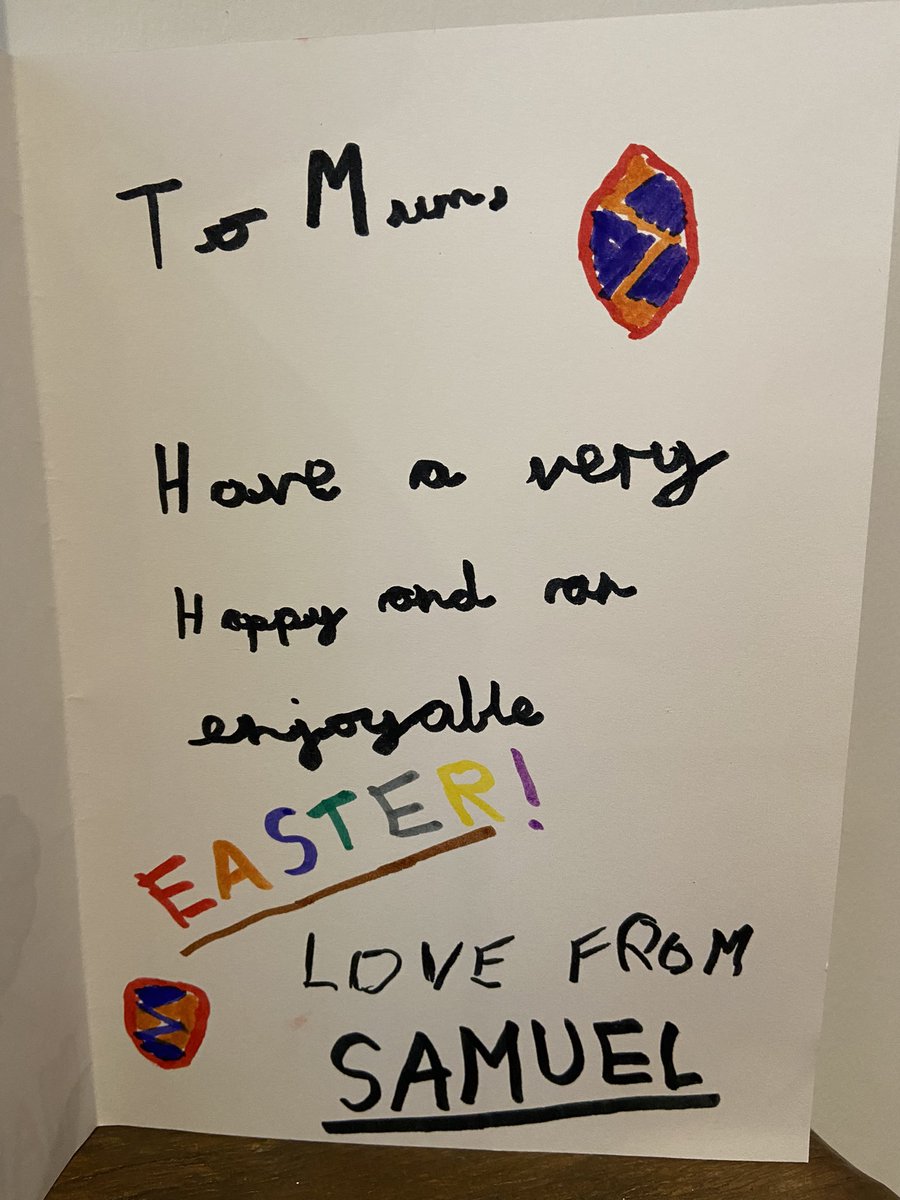 To Mum,
Have a very
Happy and an
enjoyable
EASTER!
LOVE FROM
SAMUEL